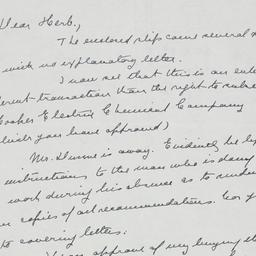 Dear Herb.,
The enclosed slips came several
with no explanatory letter.
I now see that this is an
transaction than the right to
Hooker Electro Chemical Company
which you have approved)
Mr. is away. Evidently he
instructions to the man who is doing
work during his absence as to
copies of all recommendations.
covering letter.
approve of my buying